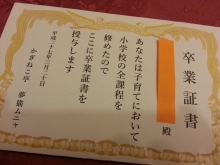 卒業証書
殿
あなたは子育てにおいて
小学校の全課程を
修めたので
ここに卒業証書を
授与します
平成二十七年三月二十日
かぎねこ亭 夢猫ムニャ